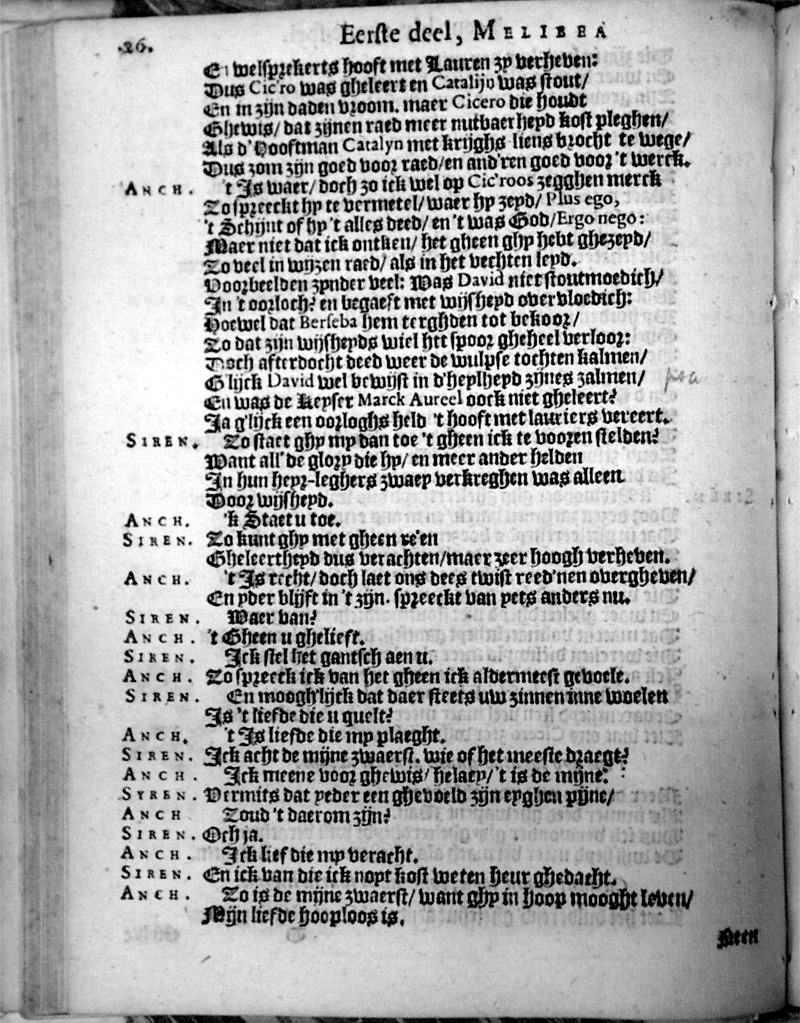 26. Eerste deel, MELIBEA
En welsprekerts hooft met Lauren zy verheven:
Dus Cic'ro was gheleert en Catalijn was stout/
En in zijn daden vroom. maer Cicero die houdt
Ghewis/ dat zijnen raed meer nutbaerheyd kost pleghen/
Als d'Hooftman Catalyn met krijghs-liens vrocht te wege/
Dus zom zijn goed voor raed/ en and'ren goed voor 't werck.
ANCH. 't Is waer/ doch zo ick wel op Cic'roos zegghen merck
Zo spreeckt hy te vermetel/ waer hy zeyd/ Plus ego,
't Schijnt of hy 't alles deed/ en 't was God/ Ergo nego:
Maer niet dat ick ontken/ het gheen ghy hebt ghezeyd/
Zo veel in wijzen raed/ als in het vechten leyd.
Voorbeelden zynder veel: Was David niet stoutmoedich/
In 't oorloch? en begaeft met wijsheyd overvloedich:
Hoewel dat Berseba hem terghden tot bekoor/
Zo dat zijn wijsheyds wiel het spoor gheheel verloor:
Doch afterdocht deed weer de wulpse tochten kalmen/
Glijck David wel bewijst in d'heylheyd zijnes zalmen/
En was de Keyser Marck Aureel oock niet gheleert?
Ja g'lijck een oorloghs held 't hooft met lauriers vereert.
SIREN. Zo staet ghy my dan toe 't gheen ick te vooren stelden?
Want all' de glory die hy/ en meer ander helden
In hun heyr-leghers zwaey verkreghen was alleen
Door wijsheyd.
ANCH. 'k Staet u toe.
SIREN. Zo kunt ghy met gheen re'en
Gheleertheyd dus verachten/ maer zeer hoogh verheven.
ANCH. 't Is recht/ doch laet ons dees twist reed'nen overgheven/
En yder blijft in 't zijn. spreeckt van yets anders nu.
SIREN. Waer van?
ANCH. 't Gheen u ghelieft.
SIREN. Ick stel het gantsch aen u.
ANCH. Zo spreeck ick van het gheen ick aldermeest gevoele.
SIREN. En moogh'lijck dat daer steets uw zinnen inne woelen
Is 't liefde die u quelt?
ANCH. 't Is liefde die my plaeght.
SIREN. Ick acht de mijne zwaerst. wie of het meeste draegt?
ANCH. Ick meene voor ghewis/ helaey/ 't is de mijne.
SYREN. Vermits dat yeder een ghevoeld zijn eyghen pijne/
ANCH Zoud 't daerom zijn?
SIREN. Och ja.
ANCH. Ick lief die my veracht.
SIREN. En ick van die ick noyt kost weten heur ghedacht.
ANCH. Zo is de mijne zwaerst/ want ghy in hoop mooght leven/
Mijn liefde hooploos is.
Neen